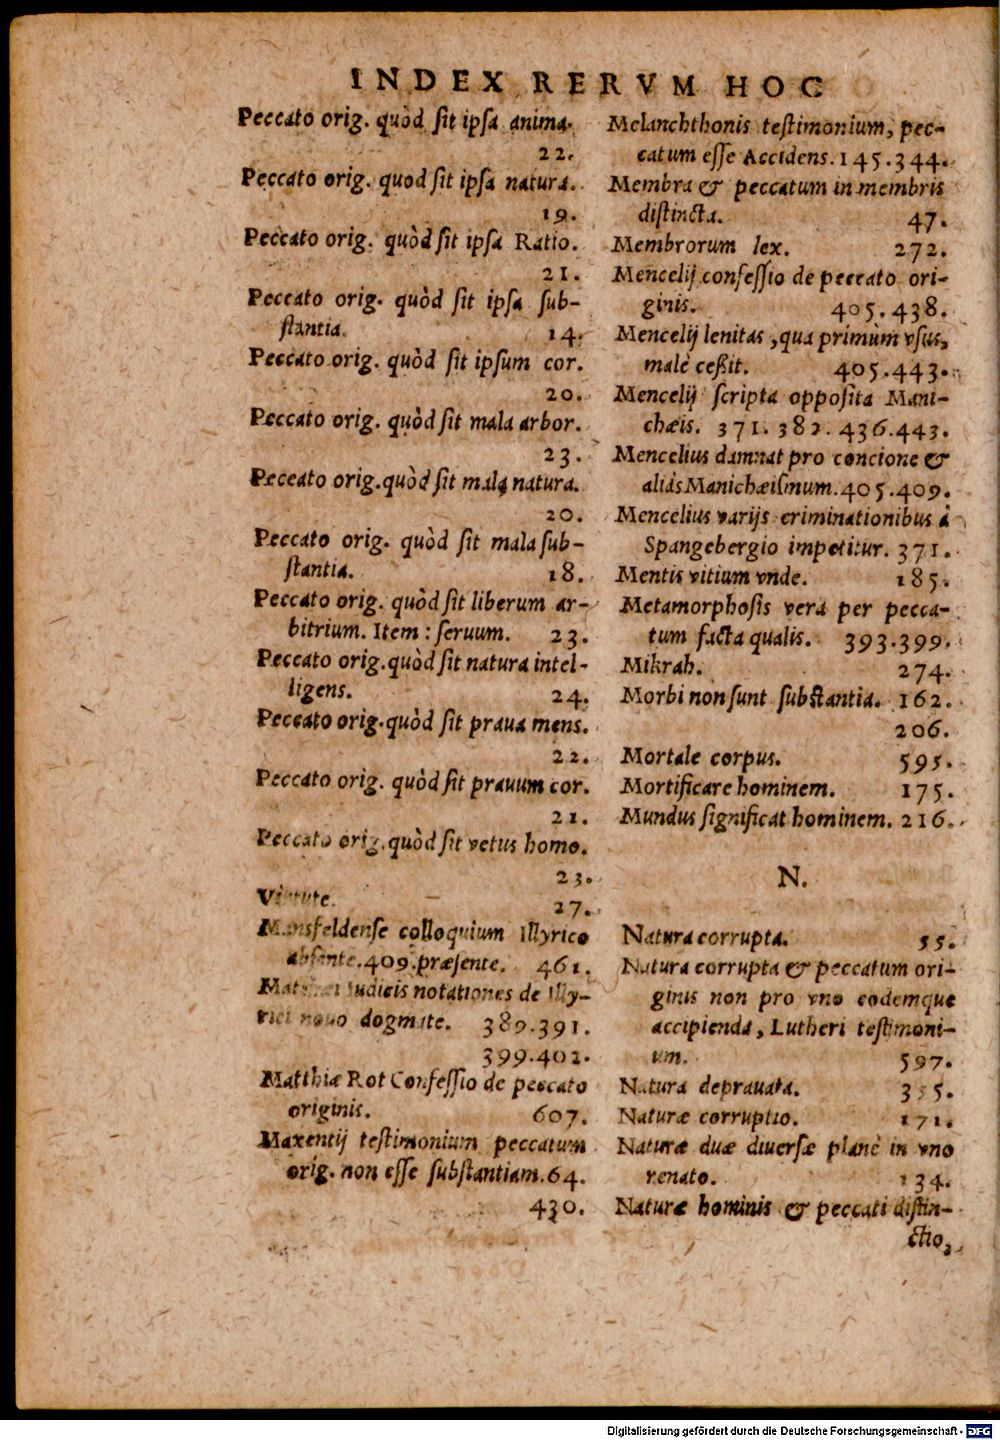 INDEX RERVM HOC
Peccato orig. quòd ſit ipſa anima.
22.
Peccato orig. quod ſit ipſa natura.
19.
Peccato orig. quòd ſit ipſa Ratio.
21.
Peccato orig. quòd ſit ipſa ſub-
ſtantia. 14.
Peccato orig. quòd ſit ipſum cor.
20.
Peccato orig. quòd ſit mala arbor.
23.
Peccato orig. quòd ſit mala natura.
20.
Peccato orig. quòd ſit mala ſub-
ſtantia. 18.
Peccato orig. quòd ſit liberum ar-
bitrium. Item: ſeruum. 23.
Peccato orig. quòd ſit natura intel-
ligens. 24.
Peccato orig. quòd ſit praua mens.
22.
Peccato orig. quòd ſit prauum cor.
21.
Peccato orig. quòd ſit vetus homo.
23.
Virtute. 27.
Mansfeldenſe colloquium Illyrico
abſente. 409. præſente. 461.
Iudicis notationes de Illy-
rici nouo dogmate. 389.391.
399.402.
Matthiæ Rot Confeſſio de peccato
originis. 607.
Maxentij teſtimonium peccatum
orig. non eſſe ſubſtantiam. 64.
430.
Melanchthonis teſtimonium, pec-
catum eſſe Accidens. 145.344.
Membra & peccatum in membris
diſtincta. 47.
Membrorum lex. 272.
Mencelij confeſſio de peccato ori-
ginis. 405.438.
Mencelij lenitas, qua primùm vſus,
malè ceßit. 405.443.
Mencelij ſcripta oppoſita Mani-
chæis. 371. 382. 436.443.
Mencelius damnat pro concione &
aliàs Manichæiſmum. 405.409.
Mencelius varijs criminationibus à
Spangebergio impetitur. 371.
Mentis vitium vnde. 185.
Metamorphoſis vera per pecca-
tum facta qualis. 393.399.
Mikrah. 274.
Morbi non ſunt ſubſtantia. 162.
206.
Mortale corpus. 595.
Mortificare hominem. 175.
Mundus ſignificat hominem. 216.
N.
Natura corrupta. 55.
Natura corrupta & peccatum ori-
ginis non pro vno eodemque
accipienda, Lutheri teſtimoni-
um. 597.
Natura deprauata.
Naturæ corruptio. 171.
Naturæ duæ diuerſæ planè in vno
renato. 134.
Naturæ hominis & peccati diſtin-
ctio,
Digitalisierung gefördert durch die Deutsche Forschungsgemeinschaft - DFG